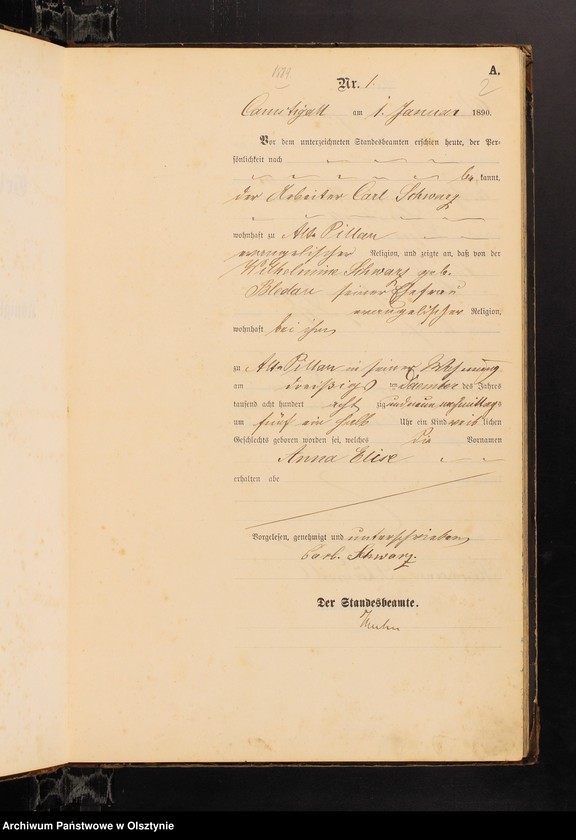 1889.
A.
2
Nr. 1.
Camstigall am 1. Januar 1890.
Vor dem unterzeichneten Standesbeamten erschien heute, der Per-
sönlichkeit nach
be kannt,
der Arbeiter Carl Schwarz
wohnhaft zu Alt Pillau
evangelischer Religion, und zeigte an, daß von der
Wilhelmine Schwarz geb.
Bledau seiner Ehefrau
evangelischer Religion,
wohnhaft bei ihm
zu Alt Pillau in seiner Wohnung
am dreißigs ten Dezember des Jahres
tausend acht hundert acht zig und neun nachmittags
um fünf ein halb Uhr ein Kind weib lichen
Geschlechts geboren worden sei, welches die Vornamen
Anna Elise
erhalten abe
Vorgelesen, genehmigt und unterschrieben
Carl Schwarz.
Der Standesbeamte.
Archiwum Państwowe w Olsztynie